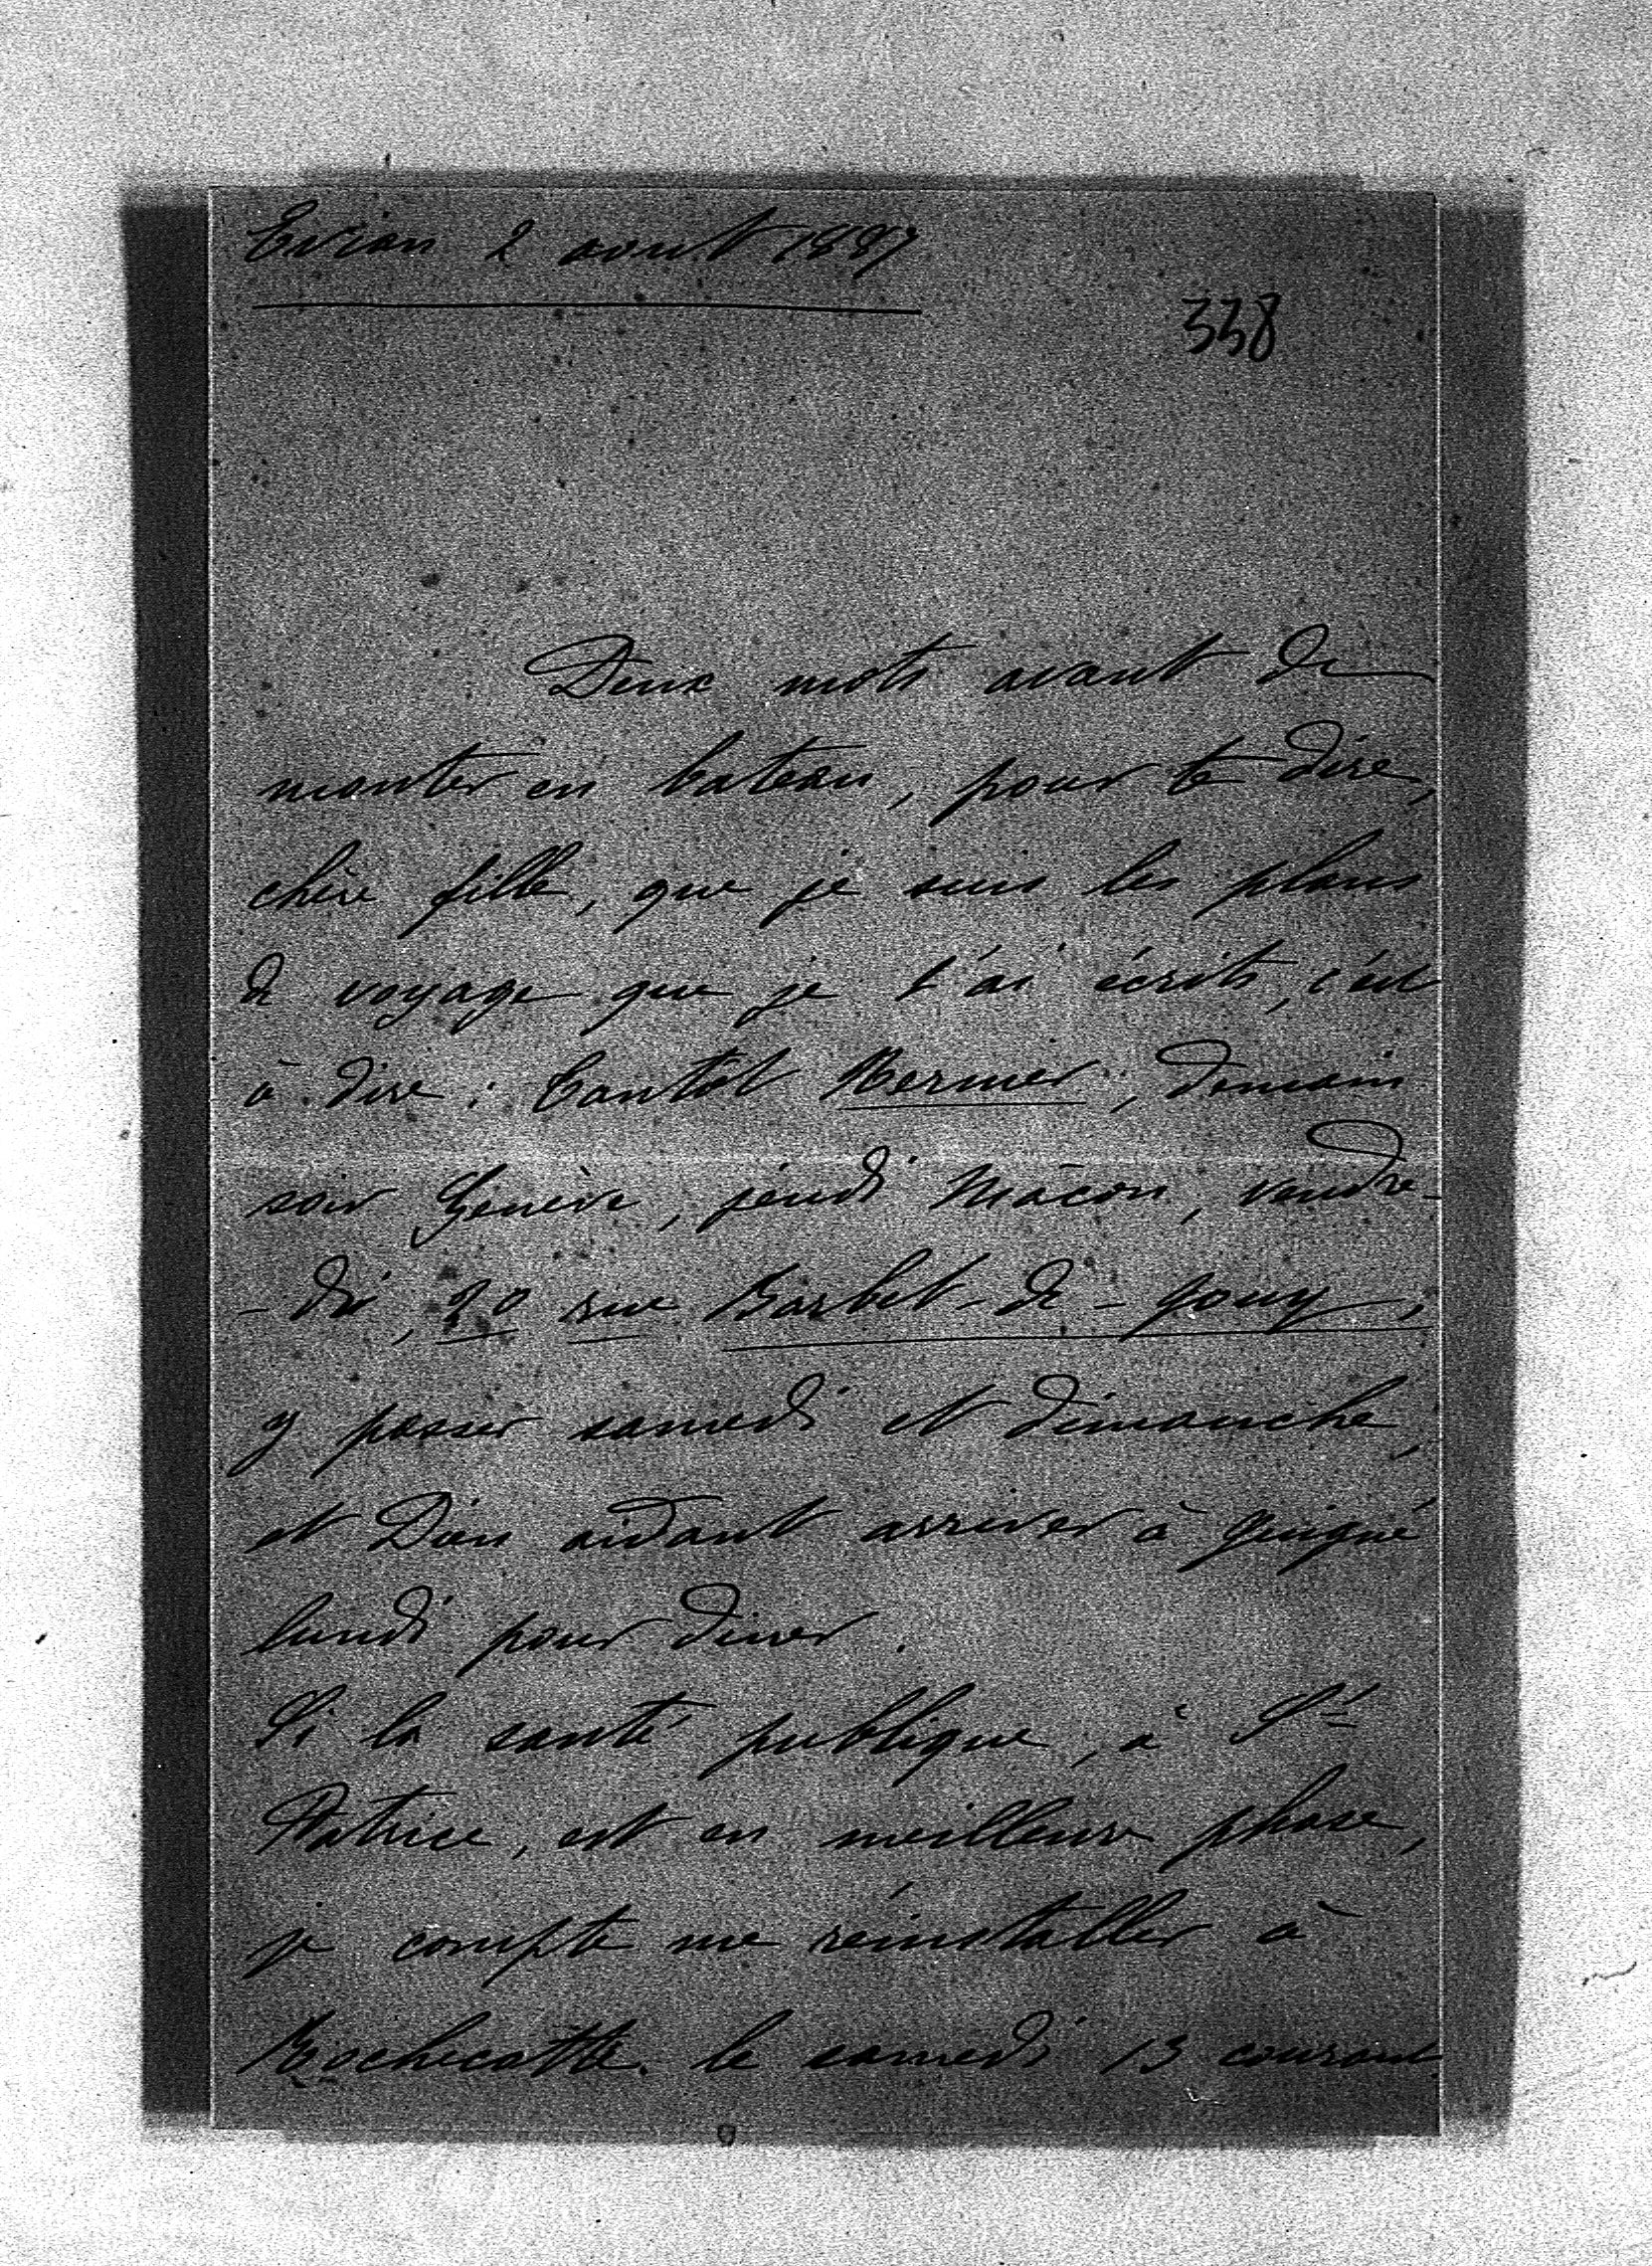 Evian 2 aout 1887
338
Deux mots avant de
monter en bateau, pour te dire,
chère fille, que je suis les plans
de voyage que je t'ai écrits, c'est
à dire : tantôt Mermer, demain
soir Genève, jeudi Mâcon, vendre-
-di, 20 rue Barbet-de-Jouy,
y passer samedi et dimanche,
et Dieu aidant arriver à Guigné
lundi pour diner.
Si la santé publique, à St
Patrice, est en meilleure phase,
je compte me réinstaller à
Rochecotte. le samedi 13 courant